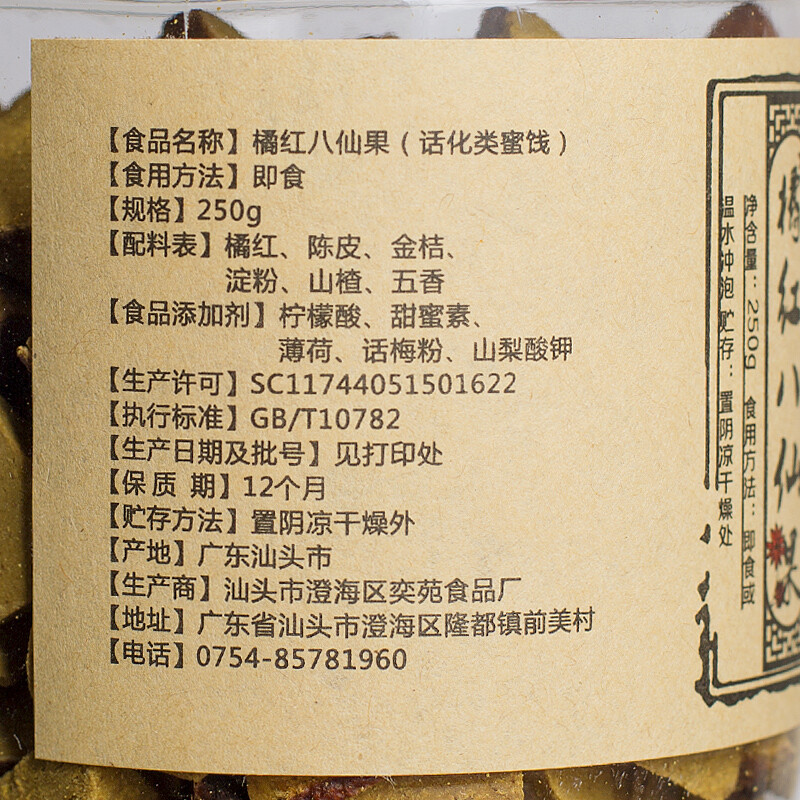 【食品名称】橘红八仙果（话化类蜜饯）
【食用方法】即食
【规格】250g
【配料表】橘红、陈皮、金桔、
淀粉、山楂、五香
【食品添加剂】柠檬酸、甜蜜素、
薄荷、话梅粉、山梨酸钾
【生产许可】SC11744051501622
【执行标准】GB/T10782
【生产日期及批号】见打印处
【保质 期】12个月
【贮存方法】置阴凉干燥外
【产地】广东汕头市
【生产商】汕头市澄海区奕苑食品厂
【地址】广东省汕头市澄海区隆都镇前美村
【电话】0754-85781960
橘红八仙果
净含量：250g 食用方法：即食或
温水冲泡 贮存：置阴凉干燥处